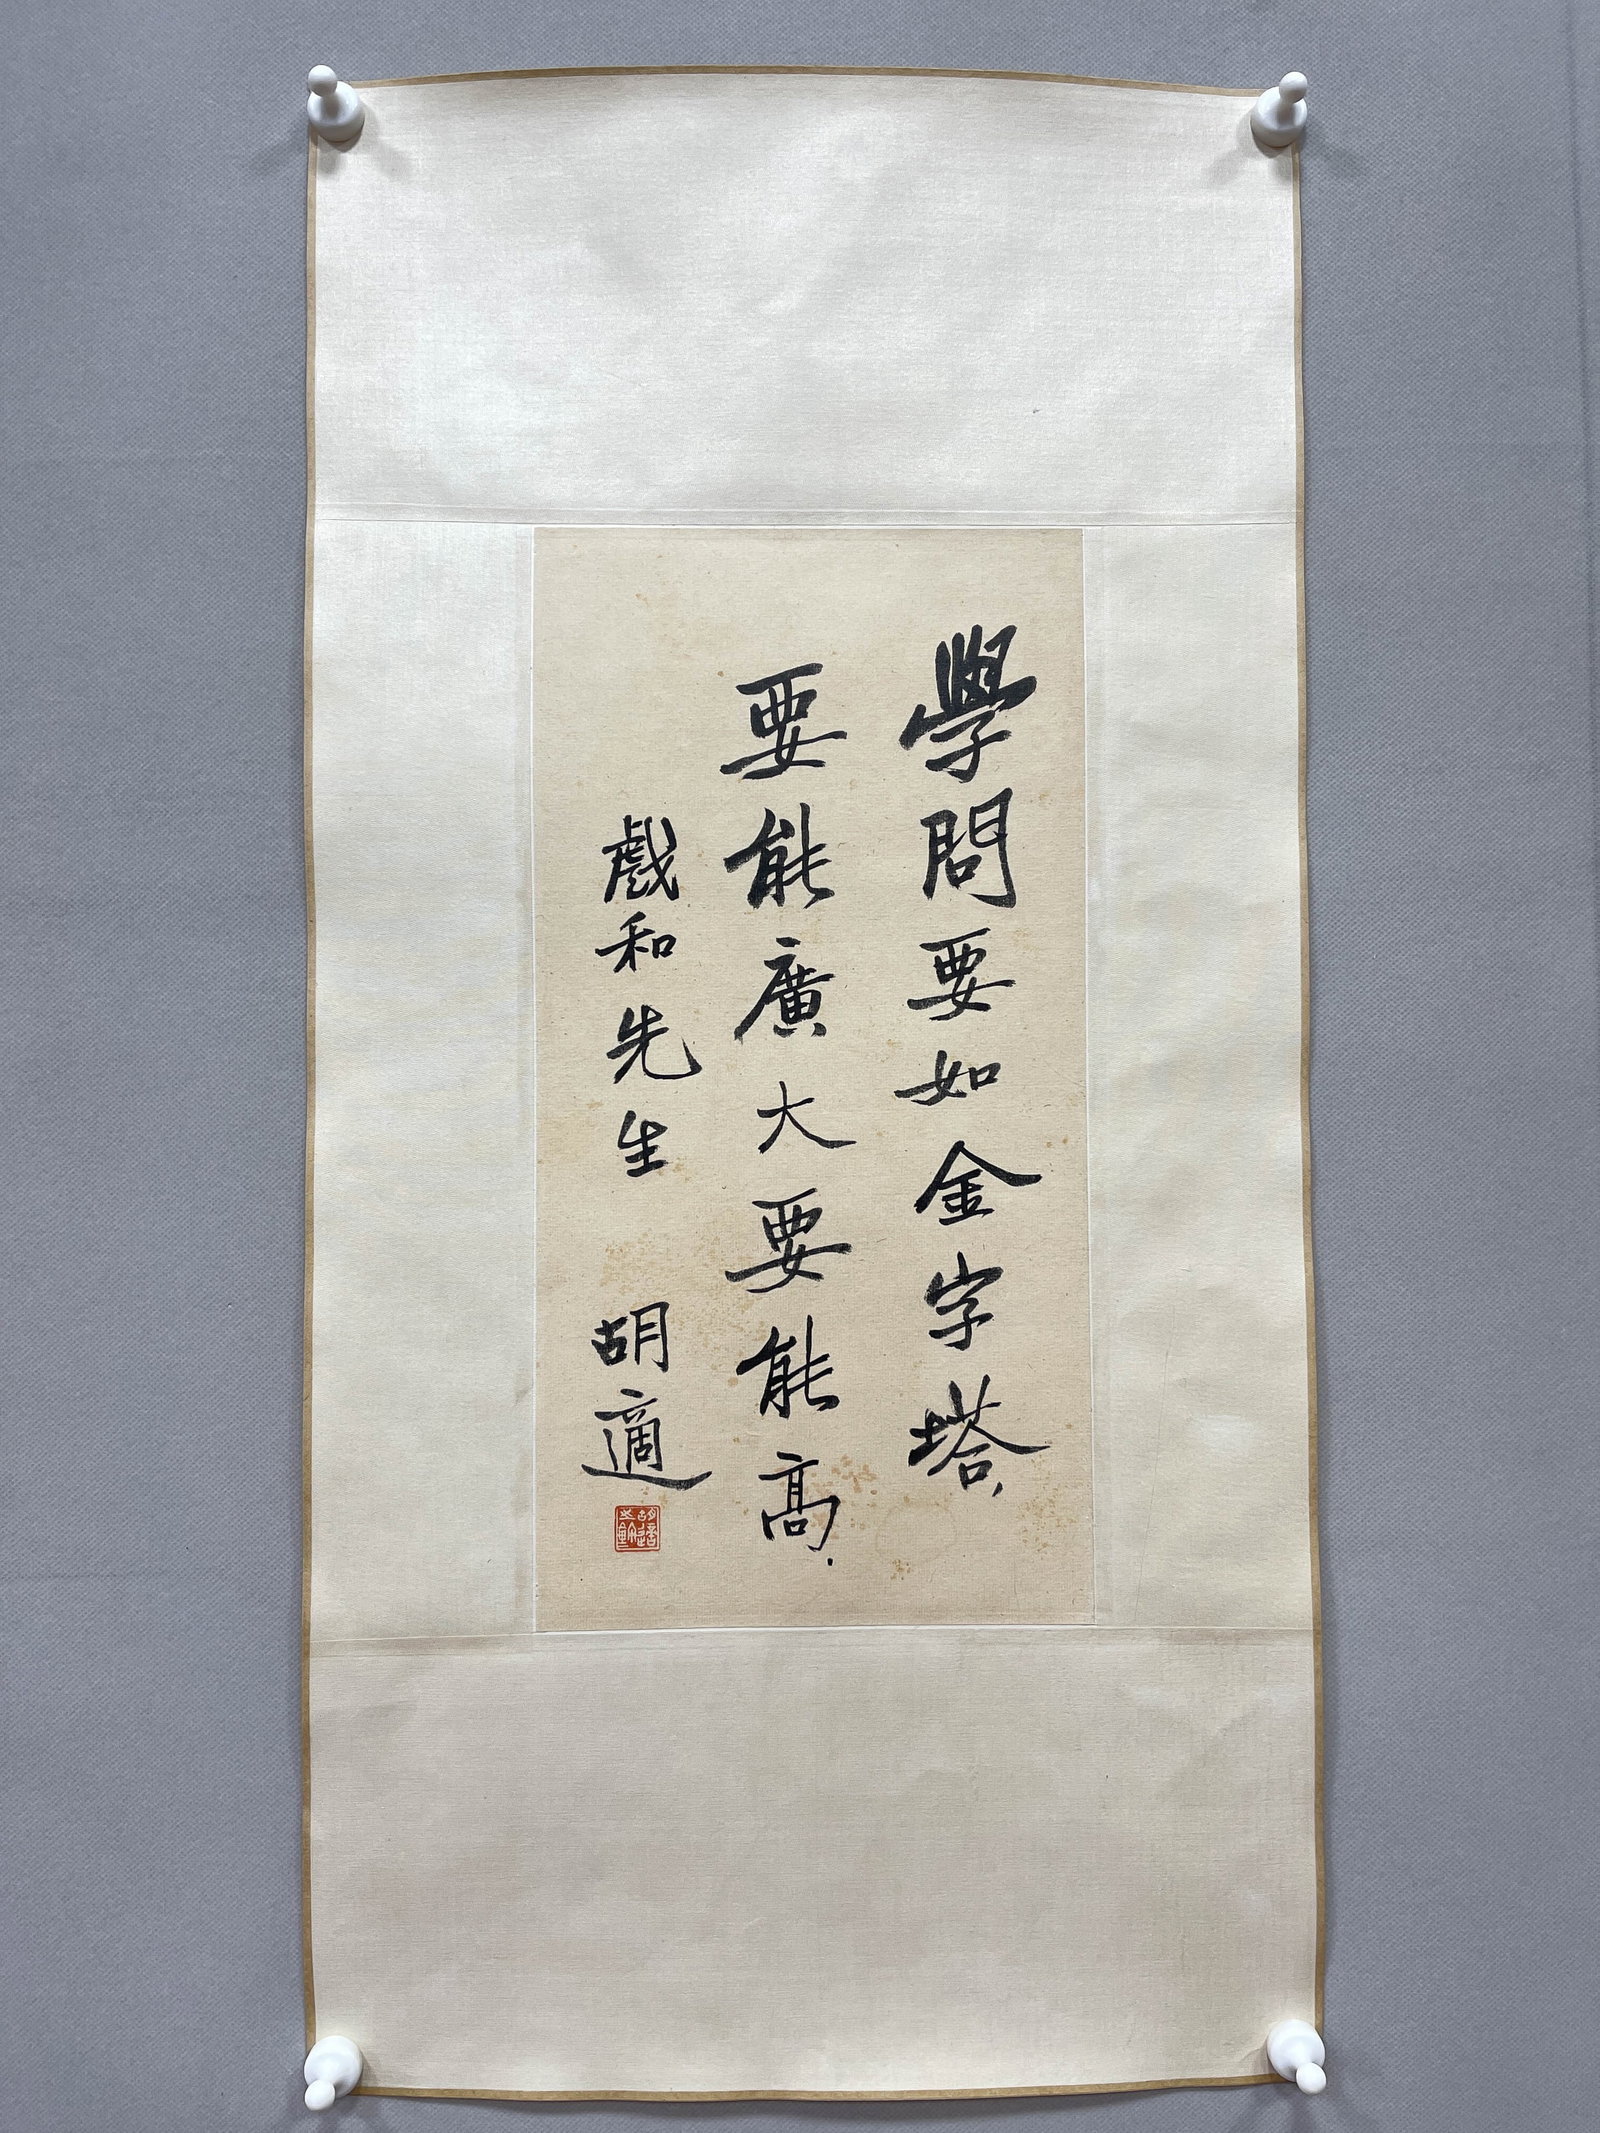 學問要如金字塔，
要能廣大要能高．
戲和先生 胡適
胡適之鉨